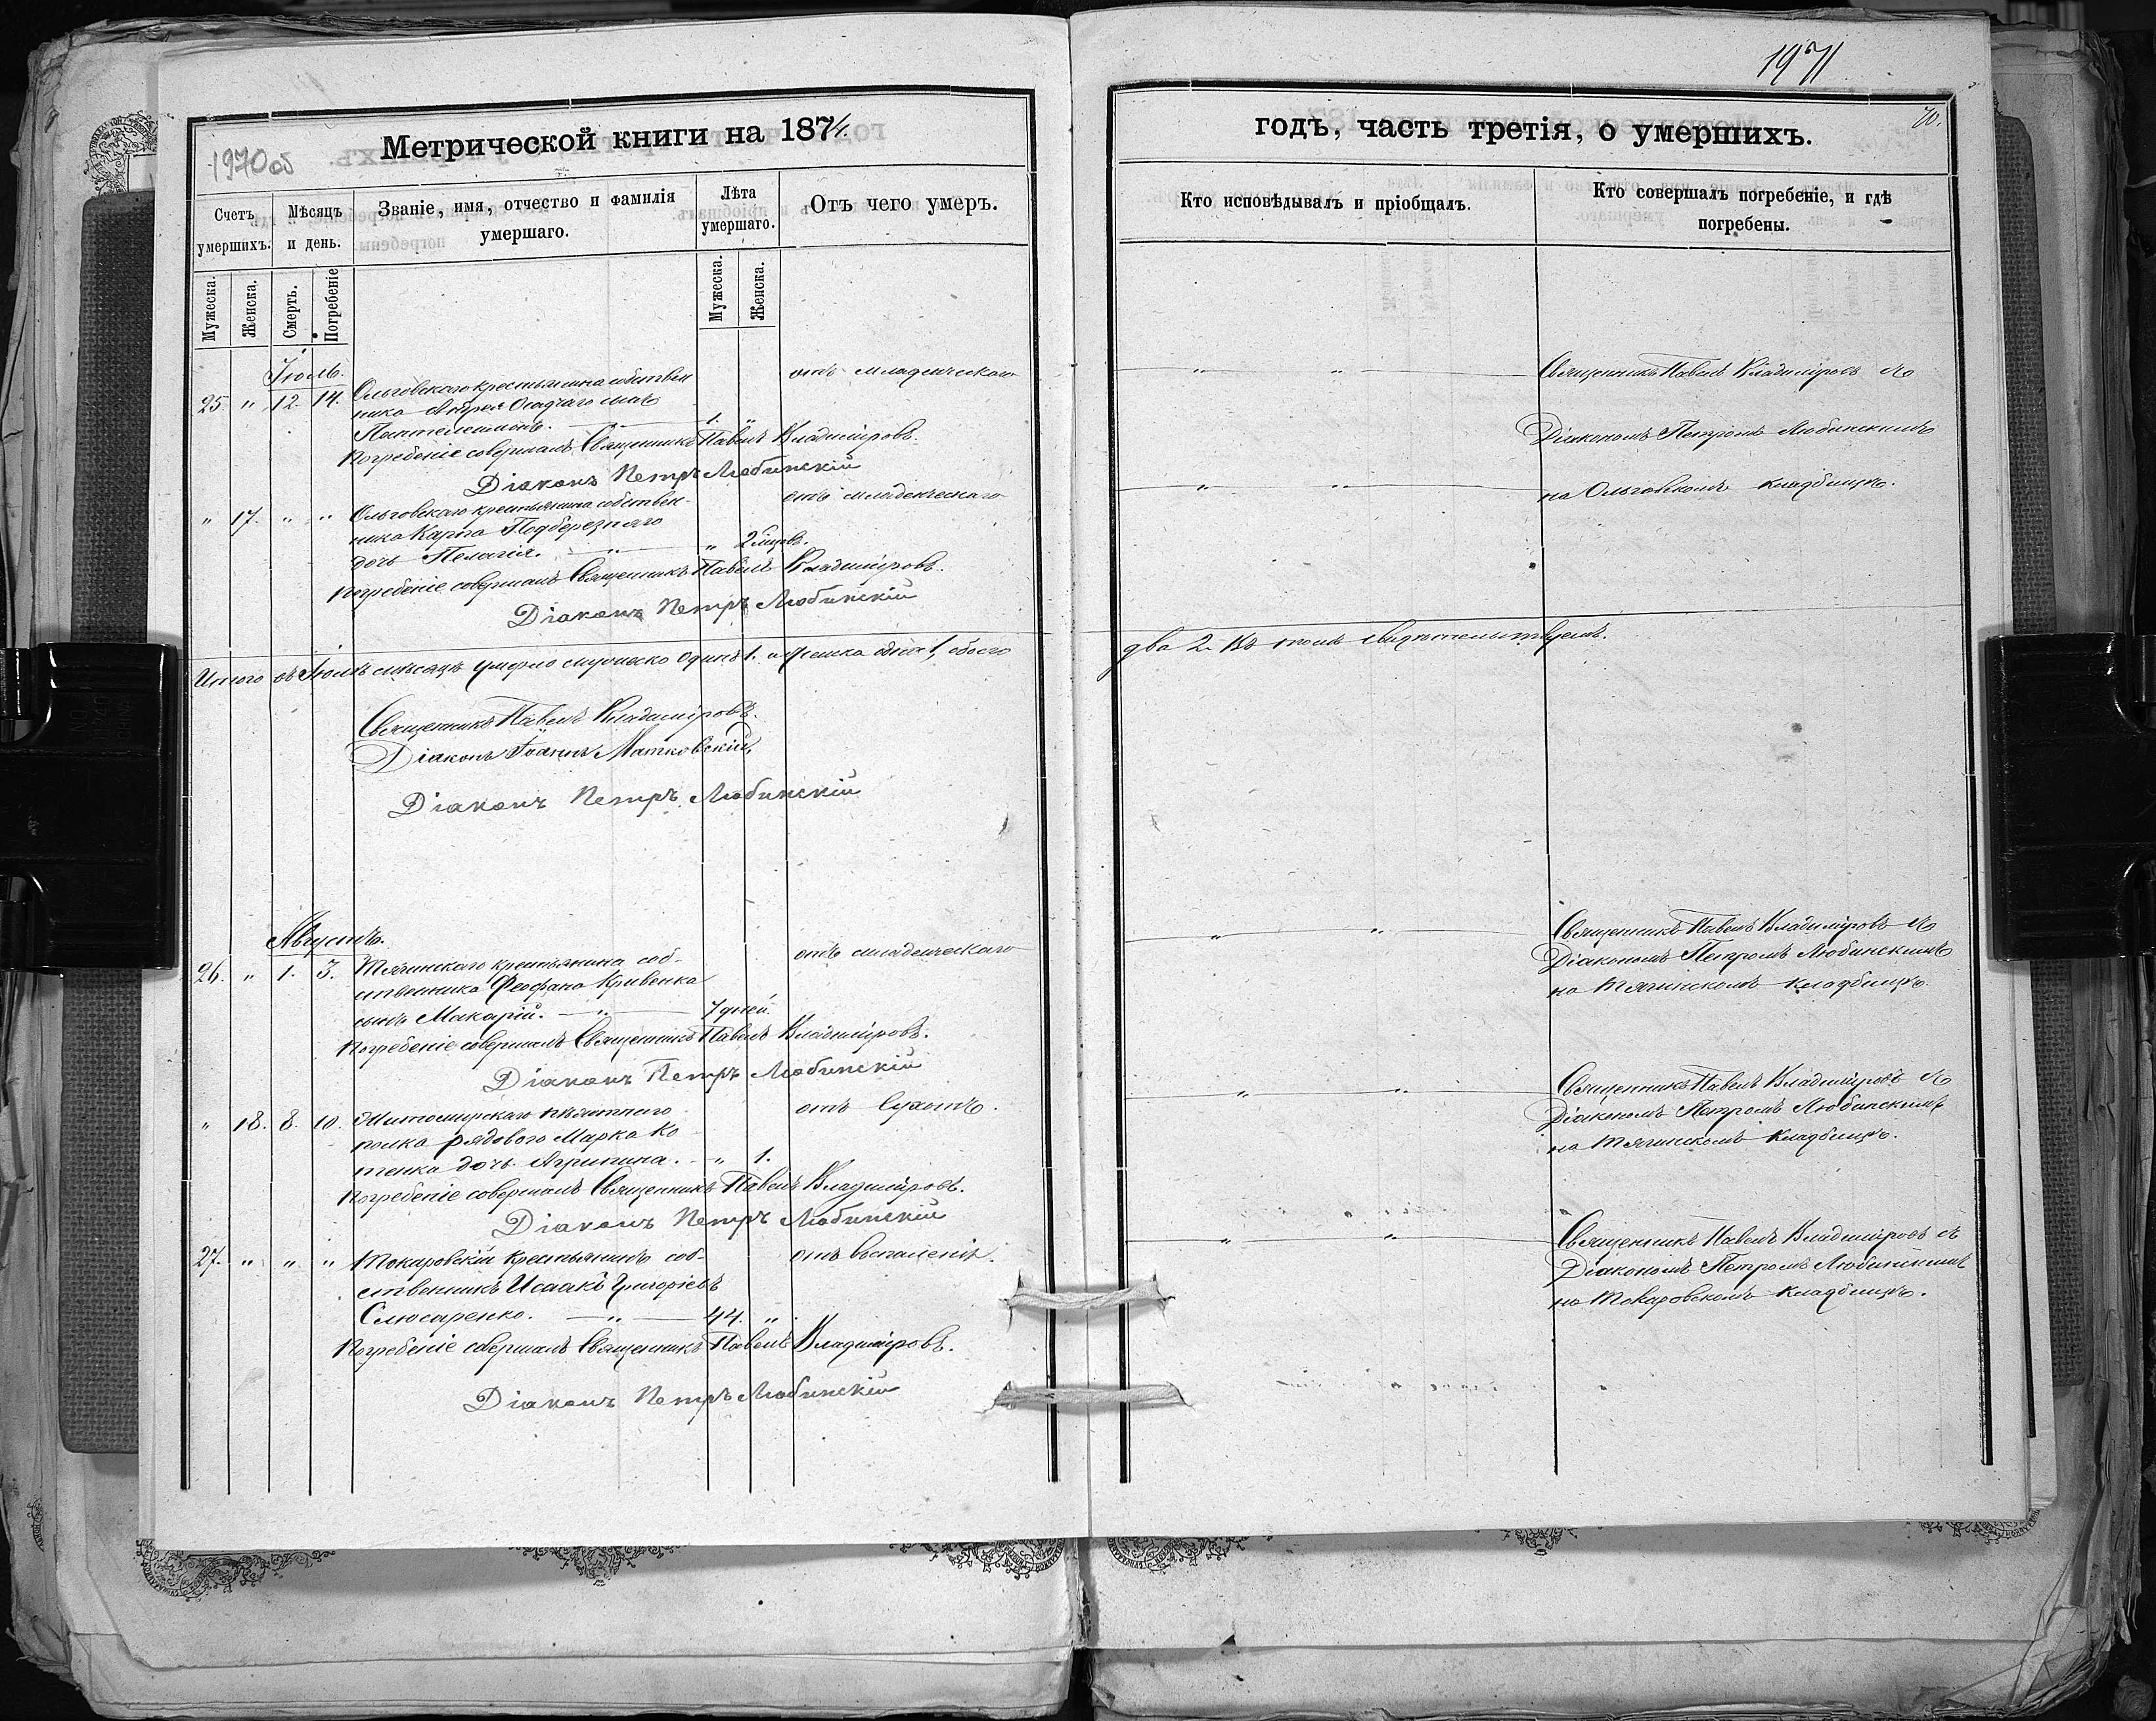 1971
70.
Метрической книги на 1874.
1970об
годъ, часть третія, о умершихъ.
Счетъ умершихъ.
Мѣсяцъ и день.
Званіе, имя, отчество и фамилія умершаго.
Лѣта умершаго.
Отъ чего умеръ.
Кто исповѣдывалъ и пріобщалъ.
Кто совершалъ погребеніе, и гдѣ погребены.
Мужеска.
Женска.
Смерть.
Погребеніе
Мужеска.
Женска.
Іюль.
25 " 12. 14. Ольговскаго крестьянина собствен
ника Андрея Осадчаго сынъ
Пантелеимонъ. 1. "
отъ младенческаго
Священникъ Павелъ Владиміровъ съ
Діакономъ Петромъ Любинскимъ
на Ольговскомъ кладбищѣ.
Погребеніе совершалъ Священникъ Павелъ Владиміровъ.
Діаконъ Петръ Любинскій
" 17. " " Ольговскаго крестьянина собствен-
ника Карпа Подберезнаго
дочь Пелагія. " 2 мѣс.
отъ младенческаго
Погребеніе совершалъ Священникъ Павелъ Владиміровъ.
Діаконъ Петръ Любинскій
Итого въ Іюлѣ мѣсяцѣ умерло мужеска одинъ 1. и женска одна 1, обоего
два 2. Въ томъ свидѣтельствуемъ.
Священникъ Павелъ Владиміровъ.
Діаконъ Іоаннъ Матковскій,
Діаконъ Петръ Любинскій
Августъ.
26. " 1. 3. Тягинскаго крестьянина соб-
ственника Феофана Кривенка
сынъ Макарій. 7 дней.
отъ младенческаго
Священникъ Павелъ Владиміровъ съ
Діакономъ Петромъ Любинскимъ
на Тягинскомъ кладбищѣ.
Погребеніе совершалъ Священникъ Павелъ Владиміровъ.
Діаконъ Петръ Любинскій
" 18. 8. 10. Житомирскаго пѣхотнаго
полка рядового Марка Ко
тенка дочь Агрипина. " 1.
отъ Сухотъ.
Священникъ Павелъ Владиміровъ съ
Діакономъ Петромъ Любинскимъ
на Тягинскомъ кладбищѣ.
Погребеніе совершалъ Священникъ Павелъ Владиміровъ.
Діаконъ Петръ Любинскій
27. " " " Токаровскій крестьянинъ соб-
ственникъ Исаакъ Григоріевъ
Слюсаренко. 44. "
отъ воспаленія.
Священникъ Павелъ Владиміровъ съ
Діакономъ Петромъ Любинскимъ
на Токаровскомъ кладбищѣ.
Погребеніе совершалъ Священникъ Павелъ Владиміровъ.
Діаконъ Петръ Любинскій